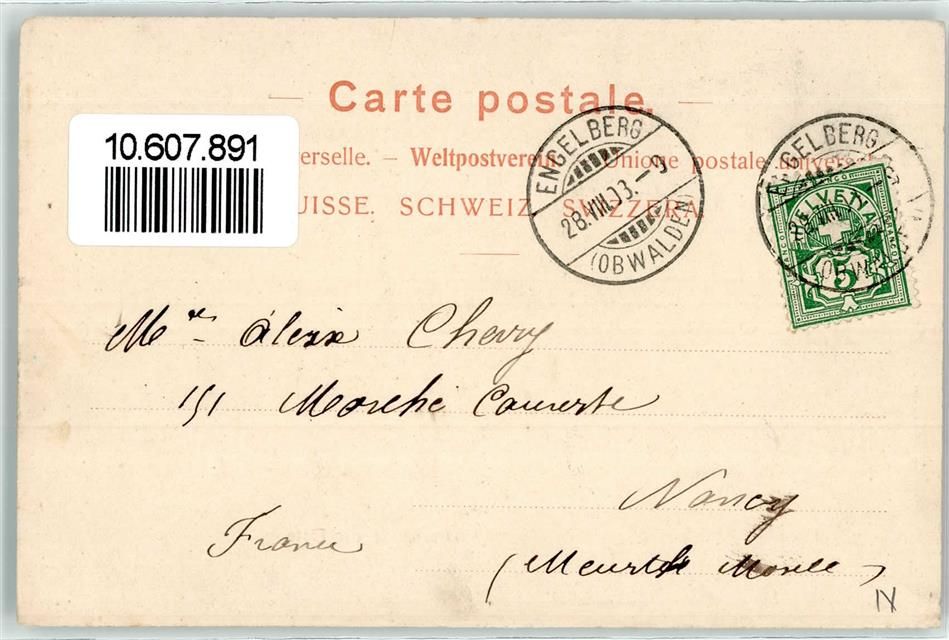 Carte postale.
10.607.891
erselle. – Weltpostverein – Unione postale universale
UISSE. SCHWEIZ. SVIZZERA.
ENGELBERG
28.VIII.03.–9
(OBWALDEN)
ENGELBERG
HELVETIA
5
Mme Alexis Chevry
151 Marché Couverte
Nancy
France
(Meurthe Moselle)
IV